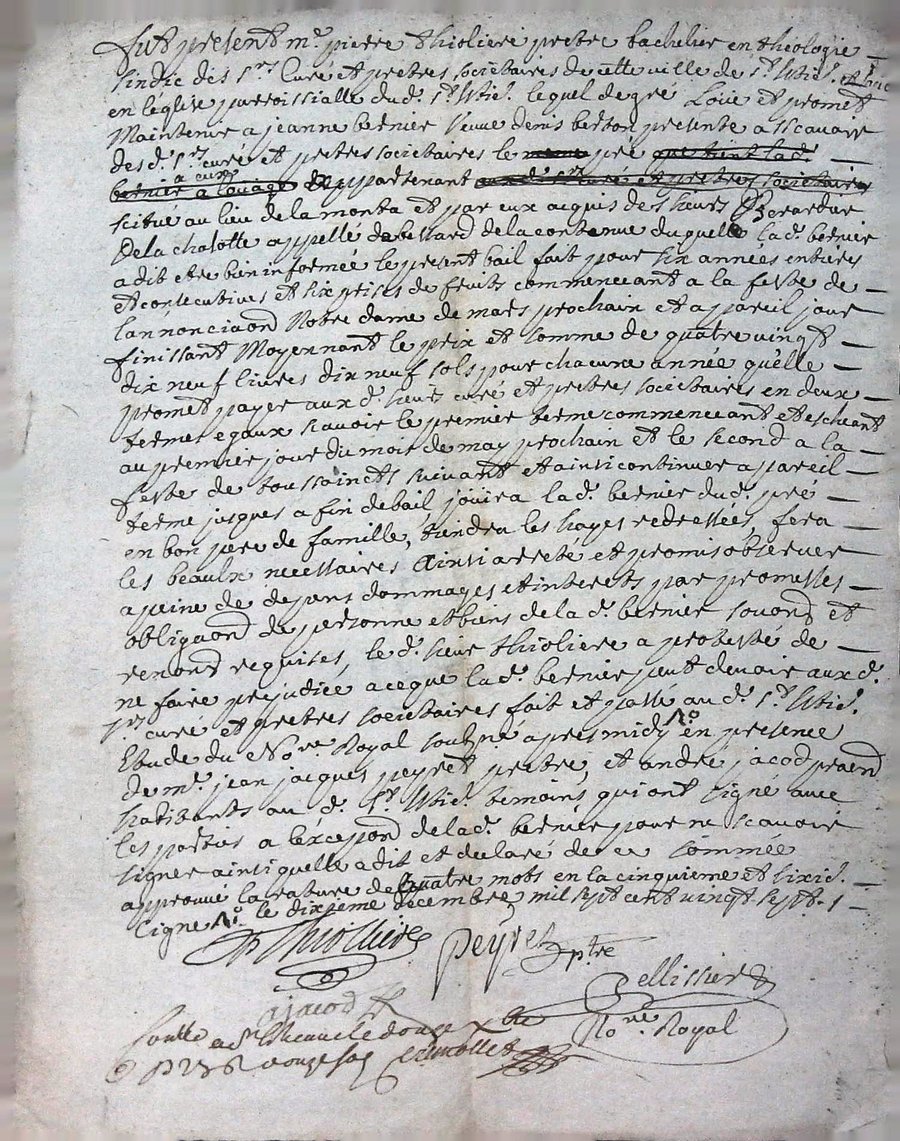 fut present mr. pierre thioliere pretre bachelier en theologie
sindic des srs. Curé et pretres societaires de cette ville de st.
en leglise parroissialle dud. st. lequel de gré Loüe et promet
Maintenir a jeanne bernier Veuve denis berton presente a scavoir
desd. srs. curé et pretres societaires le meme pré que tient lad.
a eux
bernier a louage appartenant auxd. srs. curé et pretres societaires
scitué au lieu de la monta et par eux acquis des sieurs
De la chalotte appellé de la contenue duquel lad. bernier
a dit etre bien informée le present bail fait pour six années entieres
et consecutives et six prises de fruits commencant a la feste de
lannonciaon Notre dame de mars prochain et a pareil jour
finissant Moyennant le prix et somme de quatre vingt
dix neuf livres dix neuf sols pour chacune année quelle
promet payer auxd. sieurs curé et pretres societaires en deux
termes egaux scavoir le premier terme commencant et escheant
au premier jour du mois de may prochain et le second a la
feste de toussaincts suivant et ainsi continuer a pareil
terme jusques a fin de bail, joüira lad. bernier dud. pré
en bon pere de famille, tiendra les hayes redressées, fera
les beaulx necessaires Ainsi arreté et promis observer
a peine de depens dommages et interets par promesses
obligaond de personne et biens de lad. bernier
renond requises, le d. sieur thioliere a protesté de
ne faire prejudice a ce que lad. bernier peut devoir auxd.
srs. curé et pretres societaires fait et passé aud. st.
Etude du Nore. Royal soubsné apres midy en presence
de mr. jean jacques peyret pretre, et andré jacod
habitants aud. st. temoins qui ont signé avec
les parties a lexcepond de lad. bernier pour ne scavoir
signer ainsi quelle a dit et declaré de ce sommée
approuvé la rature de quatre mots en la cinquieme et sixie.
ligne le dixieme decembre mil sept cent vingt sept
Thiolliere
Peyret ptre
Pellissier
ajacod
Nore. Royal
douze